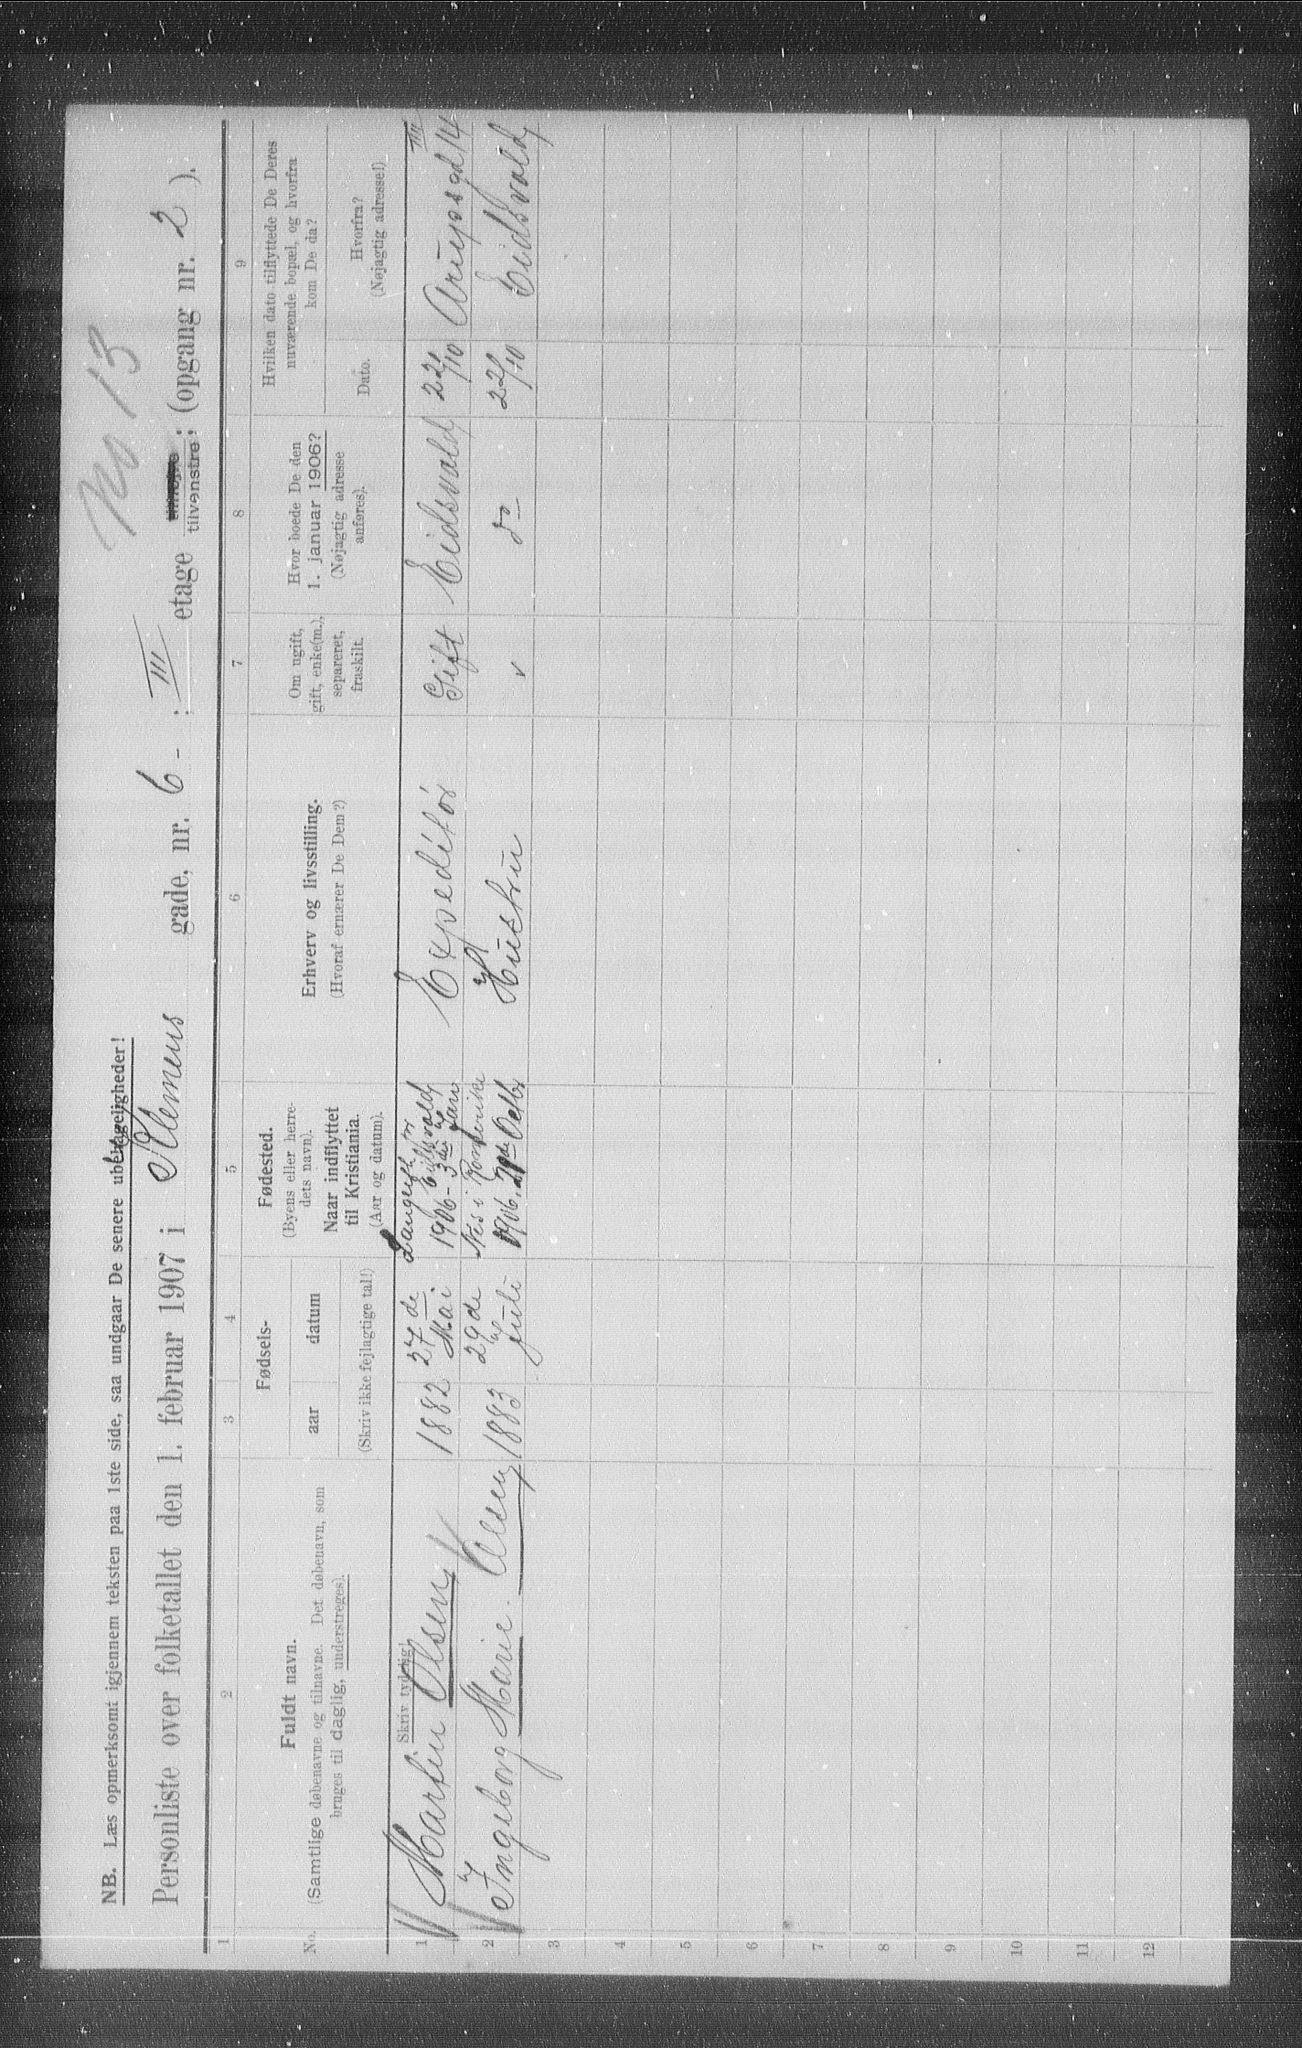 No 13
NB. Læs opmerksomt igjennem teksten paa 1ste side, saa undgaar De senere ubehageligheder!
Personliste over folketallet den 1. februar 1907 i Klemens gade, nr. 6 - ; III etage tilvenstre; (opgang nr. 2 ).
1 2 3 4 5 6 7 8 9
No.
Fuldt navn.
(Samtlige døbenavne og tilnavne. Det døbenavn, som
bruges til daglig, understreges).
Skriv tydelig!
Fødsels-
aar datum
(Skriv ikke fejlagtige tal!)
Fødested.
(Byens eller herre-
dets navn).
Naar indflyttet
til Kristiania.
(Aar og datum).
Erhverv og livsstilling.
(Hvoraf ernærer De Dem?)
Om ugift,
gift, enke(m.),
separeret,
fraskilt.
Hvor boede De den
1. januar 1906?
(Nøjagtig adresse
anføres).
Hvilken dato tilflyttede De Deres
nuværende bopæl, og hvorfra
kom De da?
Dato.
Hvorfra?
(Nøjagtig adresse!)
1 Martin Olsen 1882 27de Mai Eidsvold 1906 - 3die Jan Expeditör Gift Eidsvold 22/10 Arupsgd 14 III
2 Ingeborg Marie Olsen 1883 29de juli Nes i Romerike 1906. Hustru do 22/10 Eidsvold
3
4
5
6
7
8
9
10
11
12